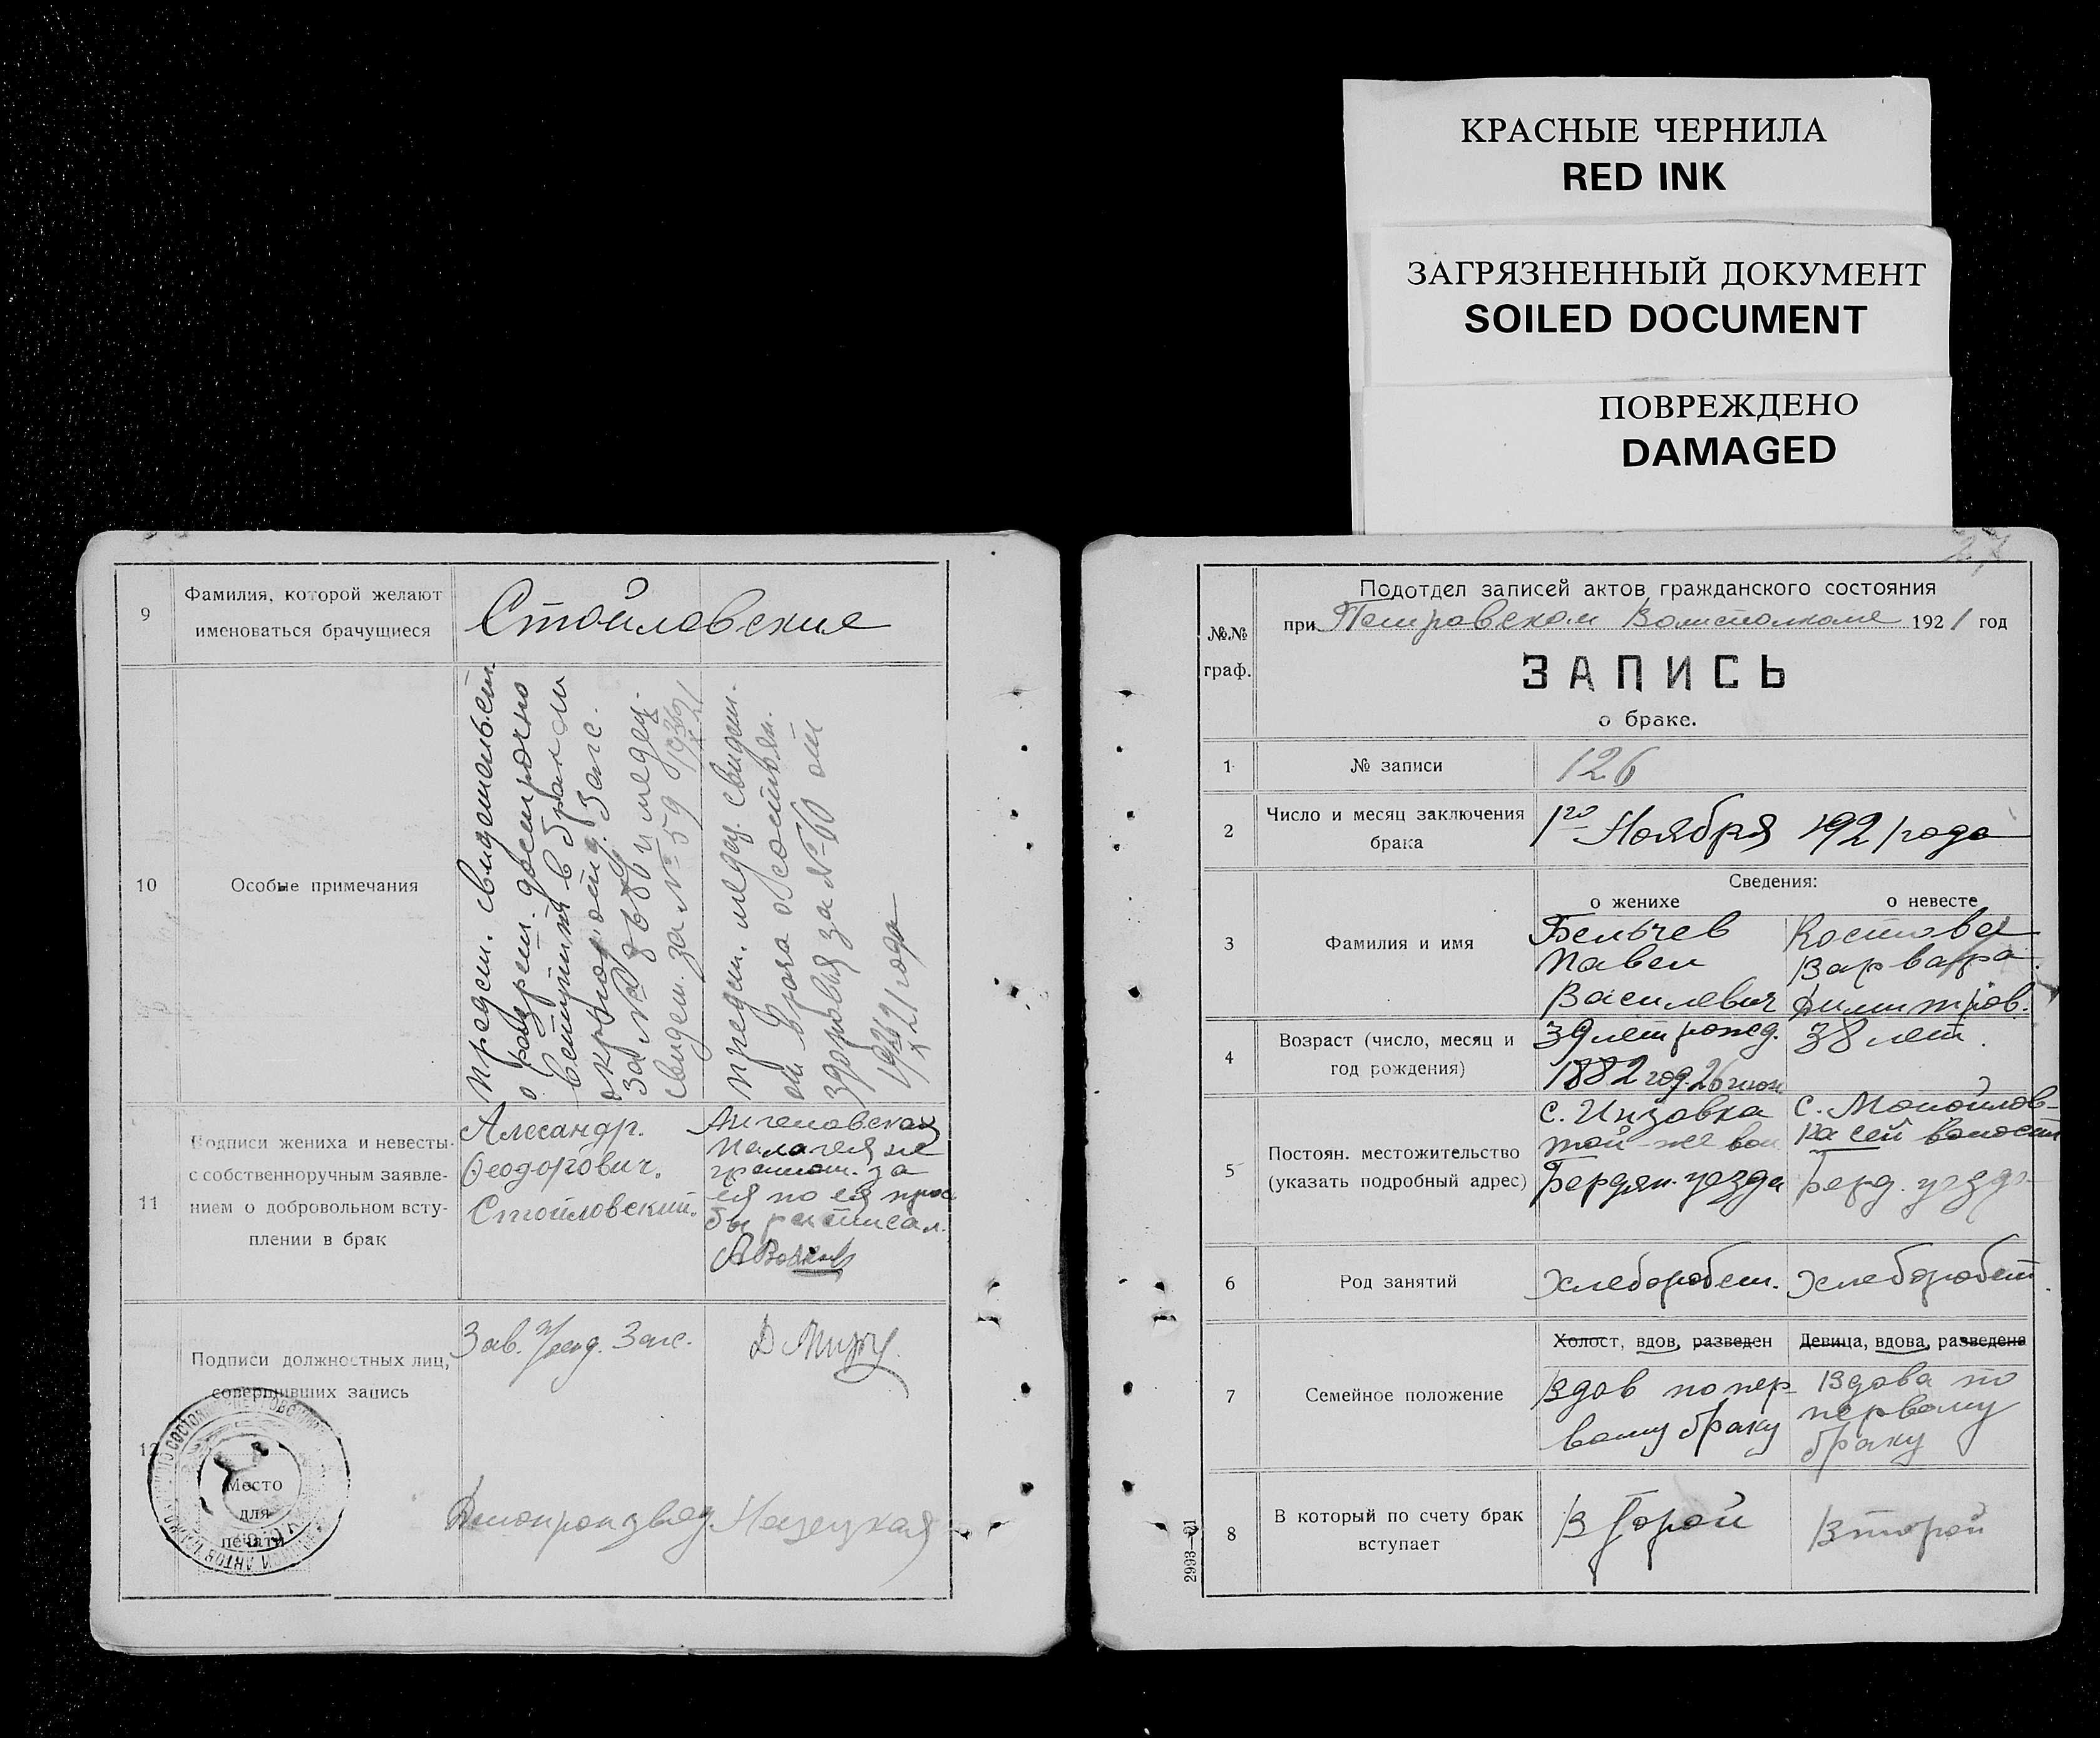 КРАСНЫЕ ЧЕРНИЛА
RED INK
ЗАГРЯЗНЕННЫЙ ДОКУМЕНТ
SOILED DOCUMENT
ПОВРЕЖДЕНО
DAMAGED
9
Фамилия, которой желают
именоваться брачущиеся
Стойловские
10
Особые примечания
предст. свидетельст.
о разреш. досрочно
вступит в браком
окружн. отд. Загс.
за № 8686 и медец.
свидет. за № 59 1926/X21
предст. медец. свидет.
от врача о состоян.
здоровья за № 60 от
192 года
11
Подписи жениха и невесты
с собственноручным заявле-
нием о добровольном всту-
плении в брак
Алесандр.
Феодорович.
Стойловский.
Ангеловская
Пелагея не
грамот. за
ея по ея прос
бы росписал.
12
Подписи должностных лиц,
совершивших запись
Зав. Загс.
Место
для
печати
Делопроизвод.
№№
граф.
Подотдел записей актов гражданского состояния
при Петровском Волисполкоме 1921 год
ЗАПИСЬ
о браке.
1
№ записи
126
2
Число и месяц заключения
брака
1го Ноября 1921 года
3
Фамилия и имя
Сведения:
о женихе
о невесте
Бельчев
Павел
Василевич
Костова
Варвара
Димитров.
4
Возраст (число, месяц и
год рождения)
39 лет рожд.
1882 год. 26 июн
38 лет.
5
Постоян. местожительство
(указать подробный адрес)
с. Инзовка
той-же вол
Бердян. уезда
с. Манойлов-
ка сей волости
Берд. уезда
6
Род занятий
Хлеборобст.
Хлеборобст.
7
Семейное положение
Холост, вдов, разведен
Девица, вдова, разведена
Вдов по пер-
вому браку
Вдова по
первому
браку
8
В который по счету брак
вступает
Второй
Второй
2993—21